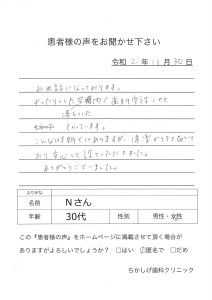 患者様の声をお聞かせ下さい
令和 2 年 11 月 30 日
お世話になっております。
ゆったりとした空間で歯科治療させて
頂いています。
こんな時期ではありますが、清潔が守られて
おり安心して診ていただけました。
ありがとうございました。
ふりがな
名前 Nさん
年齢 30代 性別 男性・女性
この『患者様の声』をホームページに掲載させて頂く場合が
ありますがよろしいでしょうか? □はい ☑匿名で □だめ
ちかしげ歯科クリニック